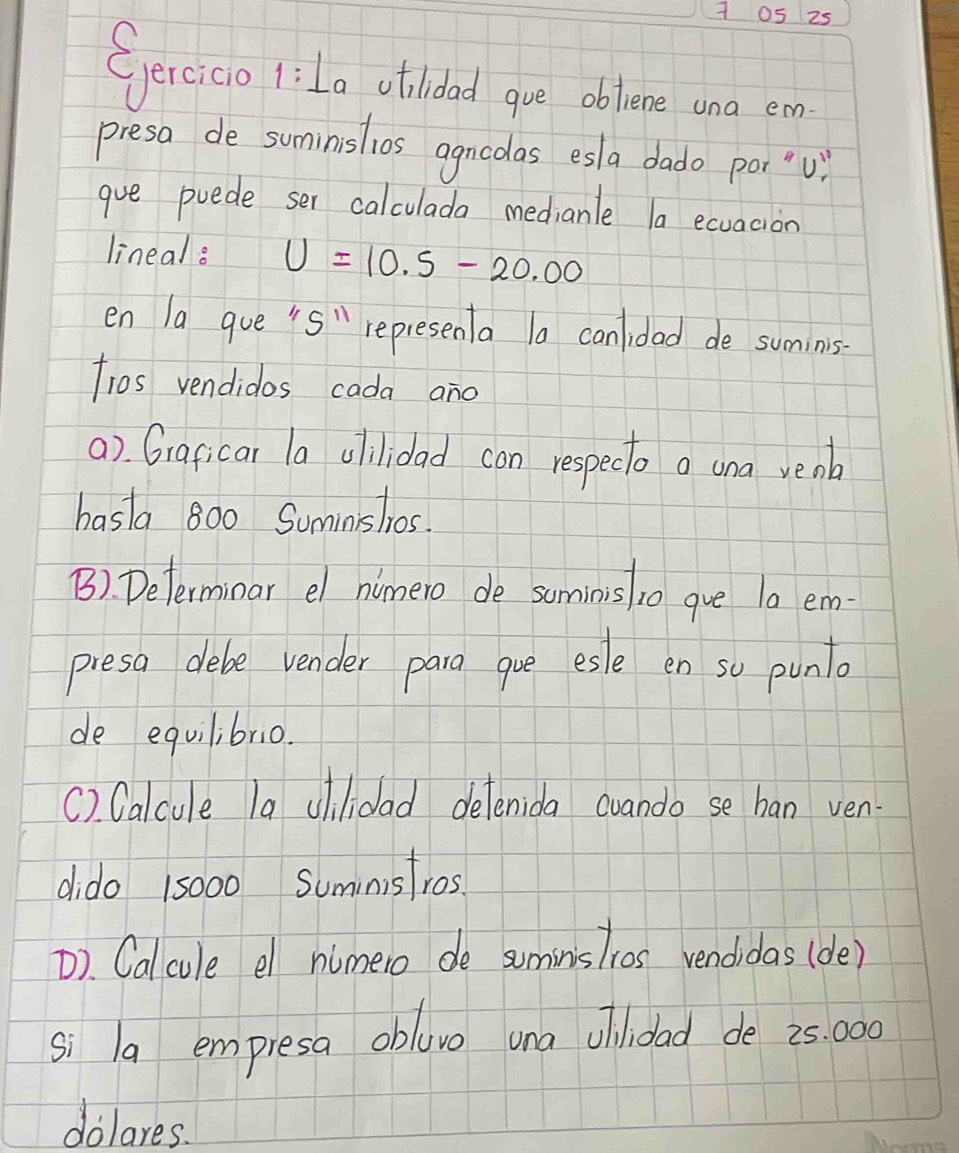 7 05 25
Ejercicio 1: La utilidad que obtiene una em-
presa de suministros agricolas esta dado por "U".
que puede ser calculada mediante la ecuación
lineal: U = 10.S - 20.00
en la que "S" representa la cantidad de suminis-
tros vendidos cada año
a). Graficar la utilidad con respecto a una venta
hasta 800 Suministros.
B). Determinar el número de suministro que la em-
presa debe vender para que este en su punto
de equilibrio.
C). Calcule la utilidad detenida cuando se han ven-
dido 15000 Suministros.
D). Calcule el número de suministros vendidas (de)
si la empresa obtuvo una utilidad de 25.000
dólares.
Norma